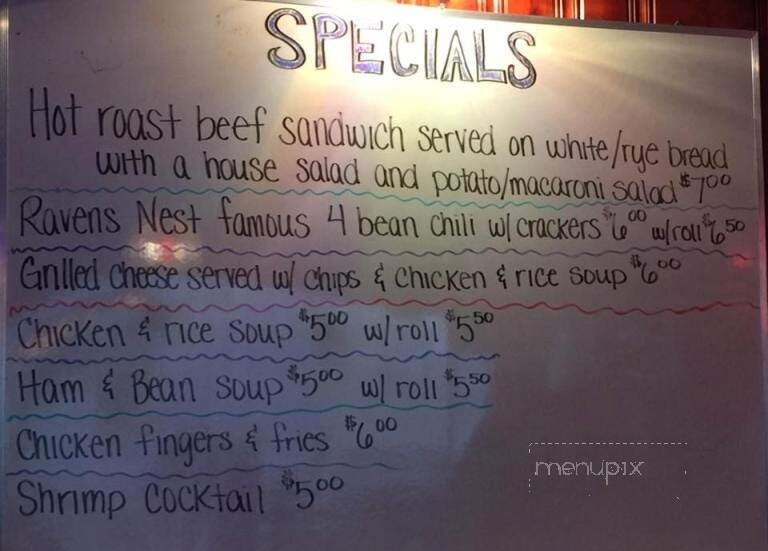 SPECIALS
Hot roast beef sandwich served on white/rye bread
with a house salad and potato/macaroni salad $7.00
Ravens Nest famous 4 bean chili w/ crackers $6.00 w/roll $6.50
Grilled cheese served w/ chips & chicken & rice soup $6.00
Chicken & rice soup $5.00 w/ roll $5.50
Ham & Bean soup $5.00 w/ roll $5.50
Chicken fingers & fries $6.00
Shrimp cocktail $5.00
menupix